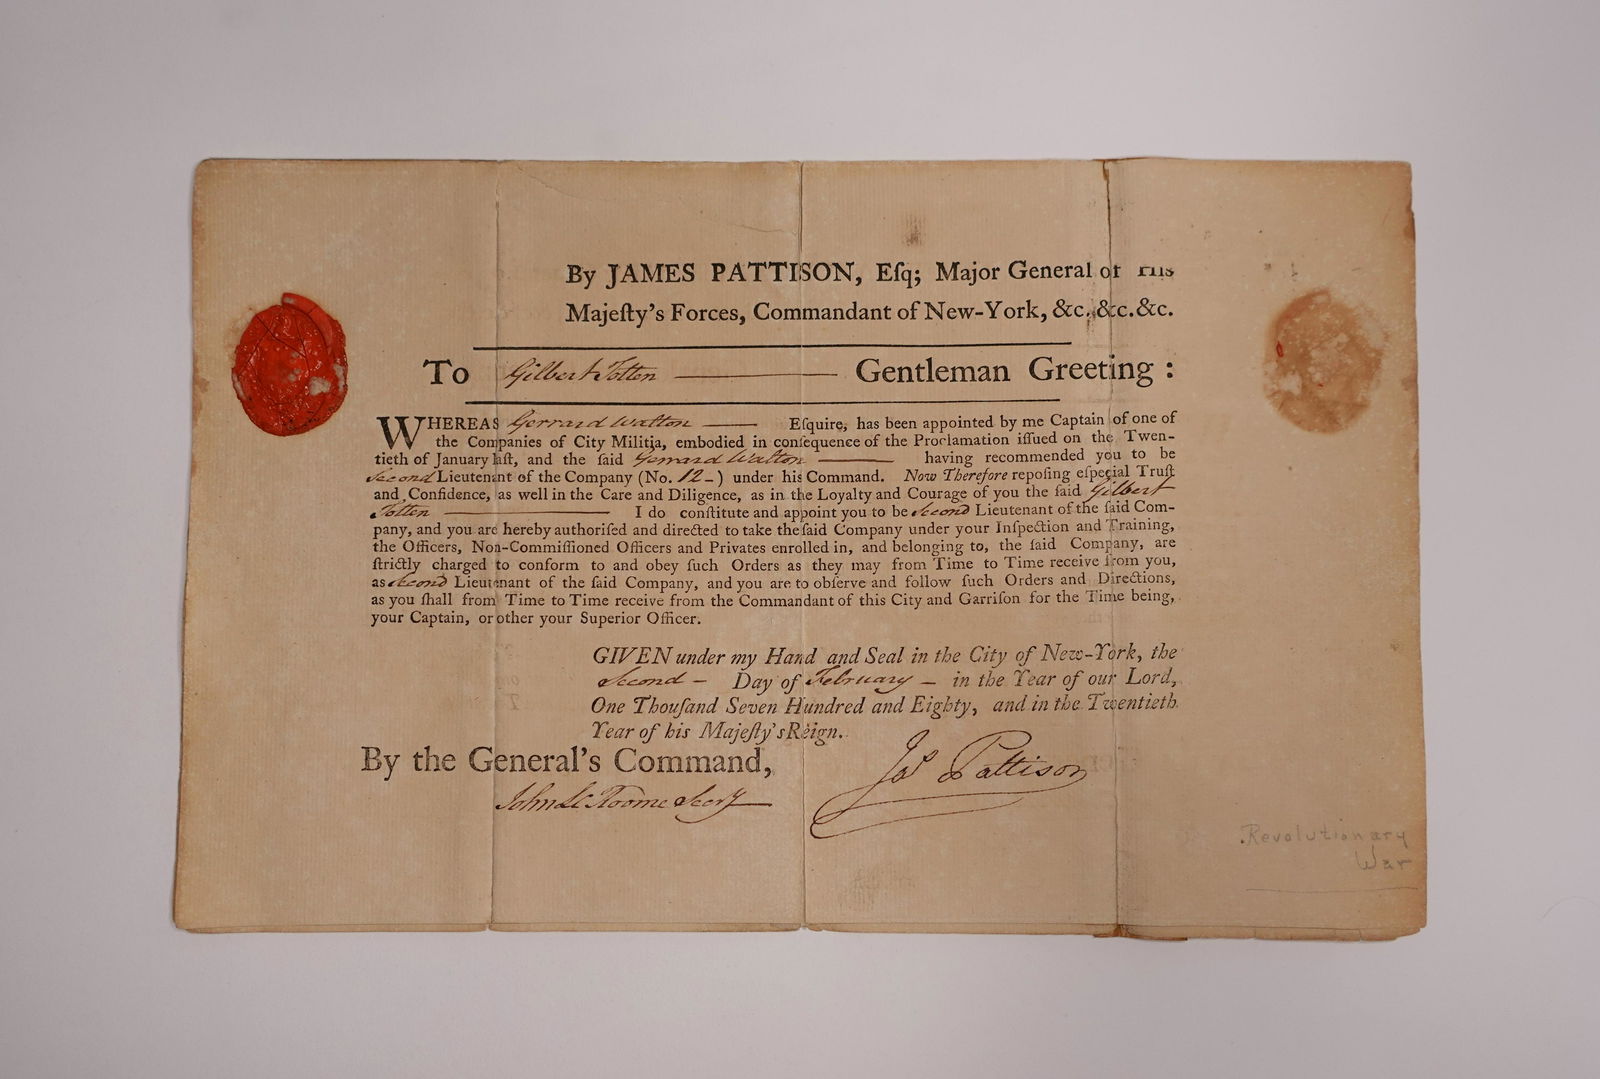 By JAMES PATTISON, Eſq; Major General of His
Majeſty's Forces, Commandant of New-York, &c. &c. &c.
To Gilbert Totten Gentleman Greeting :
WHEREAS Gerrard Walton Eſquire, has been appointed by me Captain of one of
the Companies of City Militia, embodied in conſequence of the Proclamation iſſued on the Twen-
tieth of January laſt, and the ſaid Gerrard Walton having recommended you to be
Second Lieutenant of the Company (No. 12-) under his Command. Now Therefore repoſing eſpecial Truſt
and Confidence, as well in the Care and Diligence, as in the Loyalty and Courage of you the ſaid Gilbert
Totten I do conſtitute and appoint you to be Second Lieutenant of the ſaid Com-
pany, and you are hereby authoriſed and directed to take the ſaid Company under your Inſpection and Training,
the Officers, Non-Commiſſioned Officers and Privates enrolled in, and belonging to, the ſaid Company, are
ſtrictly charged to conform to and obey ſuch Orders as they may from Time to Time receive from you,
as Second Lieutenant of the ſaid Company, and you are to obſerve and follow ſuch Orders and Directions,
as you ſhall from Time to Time receive from the Commandant of this City and Garriſon for the Time being,
your Captain, or other your Superior Officer.
GIVEN under my Hand and Seal in the City of New-York, the
Second - Day of February - in the Year of our Lord,
One Thouſand Seven Hundred and Eighty, and in the Twentieth
Year of his Majeſty's Reign.
By the General's Command,
Jas Pattison
John L C Roome Secry
Revolutionary
War